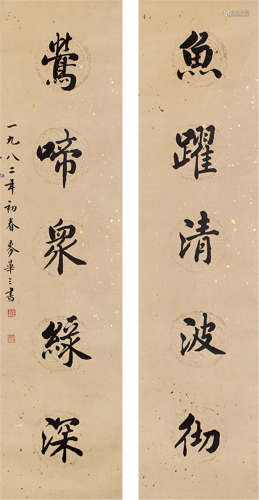 魚躍清波彻
鶯啼衆綠深
一九八二年初春麥華三書